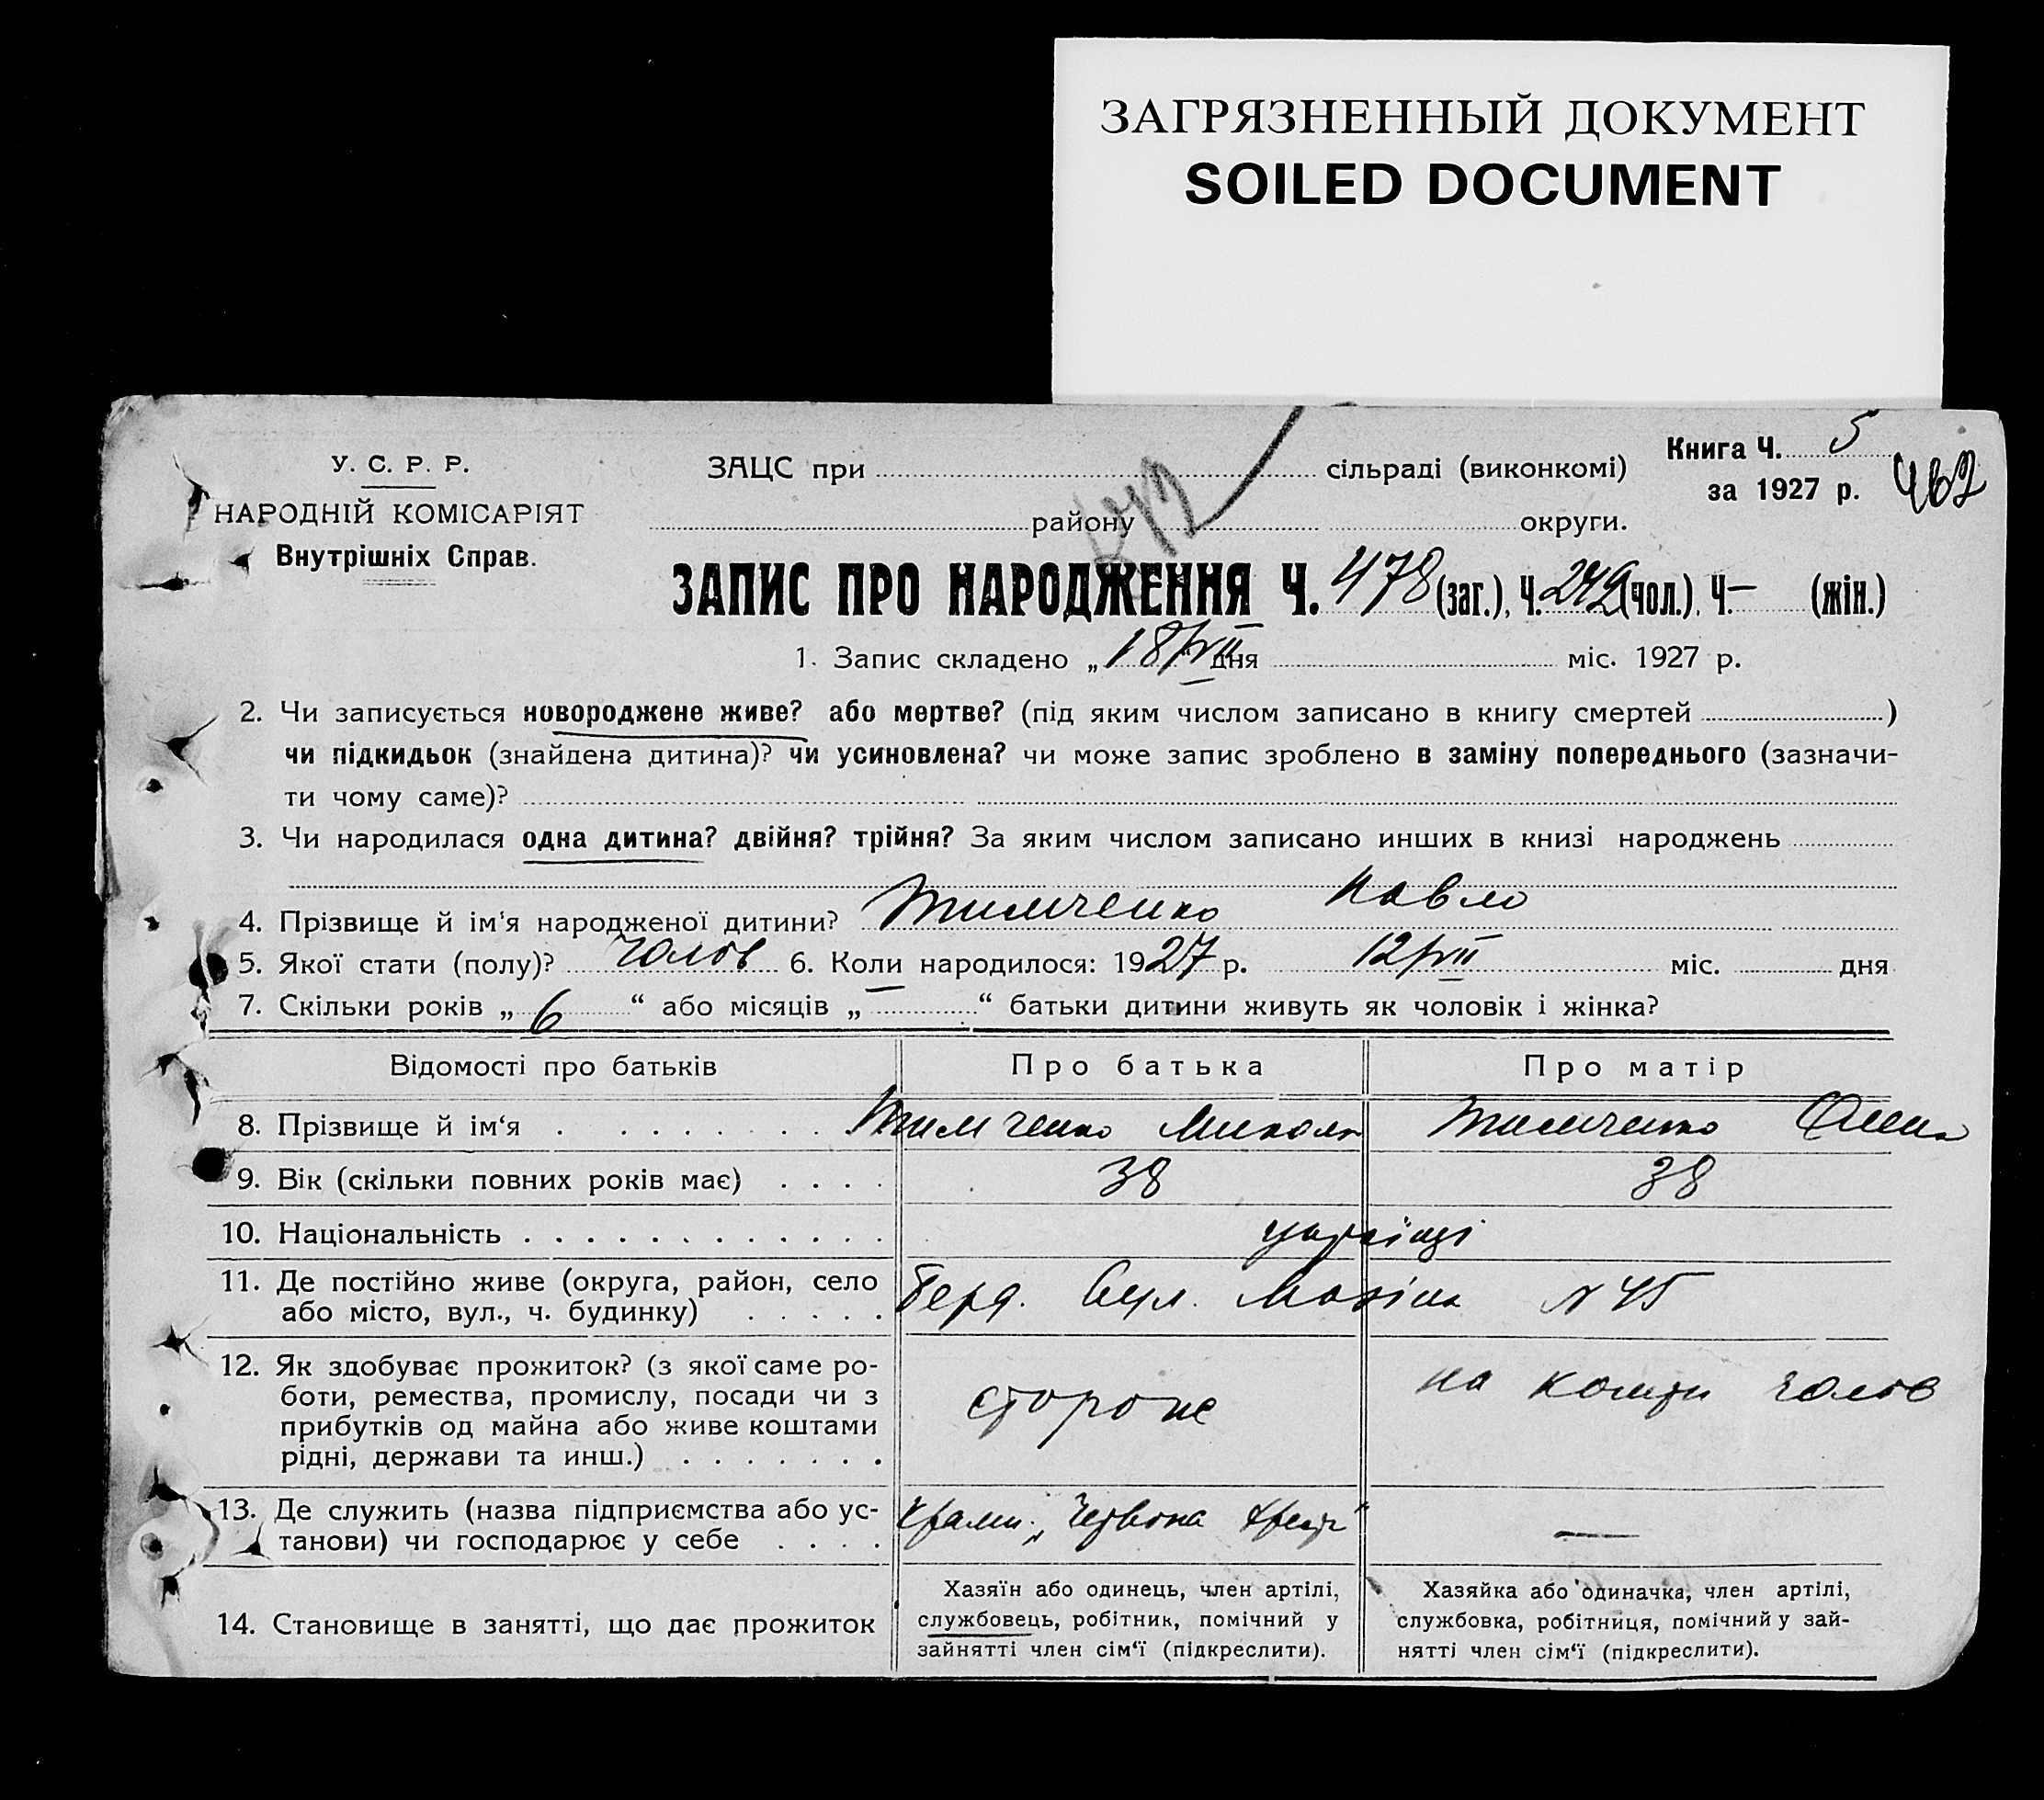 ЗАГРЯЗНЕННЫЙ ДОКУМЕНТ
SOILED DOCUMENT
У. С. Р. Р.
НАРОДНІЙ КОМІСАРІЯТ
Внутрішніх Справ.
ЗАЦС при сільраді (виконкомі)
району округи.
Книга Ч. 5
за 1927 р. 462
ЗАПИС ПРО НАРОДЖЕННЯ Ч. 478 (заг.), Ч. 249 (чол.), Ч. — (жін.)
1. Запис складено „ 18/VII “ дня міс. 1927 р.
2. Чи записується новороджене живе? або мертве? (під яким числом записано в книгу смертей )
чи підкидьок (знайдена дитина)? чи усиновлена? чи може запис зроблено в заміну попереднього (зазначи-
ти чому саме)?
3. Чи народилася одна дитина? двійня? трійня? За яким числом записано инших в книзі народжень
4. Прізвище й ім‘я народженої дитини? Тимченко Павло
5. Якої стати (полу)? чолов 6. Коли народилося: 1927 р. 12/VII міс. дня
7. Скільки років „ 6 “ або місяців „ “ батьки дитини живуть як чоловік і жінка?
Відомості про батьків Про батька Про матір
8. Прізвище й ім‘я Тимченко Микола Тимченко
9. Вік (скільки повних років має) 38 38
10. Національність українці
11. Де постійно живе (округа, район, село
або місто, вул., ч. будинку) Берд. вул. N 45
12. Як здобуває прожиток? (з якої саме ро-
боти, ремества, промислу, посади чи з
прибутків од майна або живе коштами
рідні, держави та инш.) стороже на кошти чолов
13. Де служить (назва підприємства або ус-
танови) чи господарює у себе „Червона —
14. Становище в занятті, що дає прожиток
Хазяїн або одинець, член артілі,
службовець, робітник, помічний у
зайнятті член сім‘ї (підкреслити).
Хазяйка або одиначка, член артілі,
службовка, робітниця, помічний у зай-
нятті член сім‘ї (підкреслити).